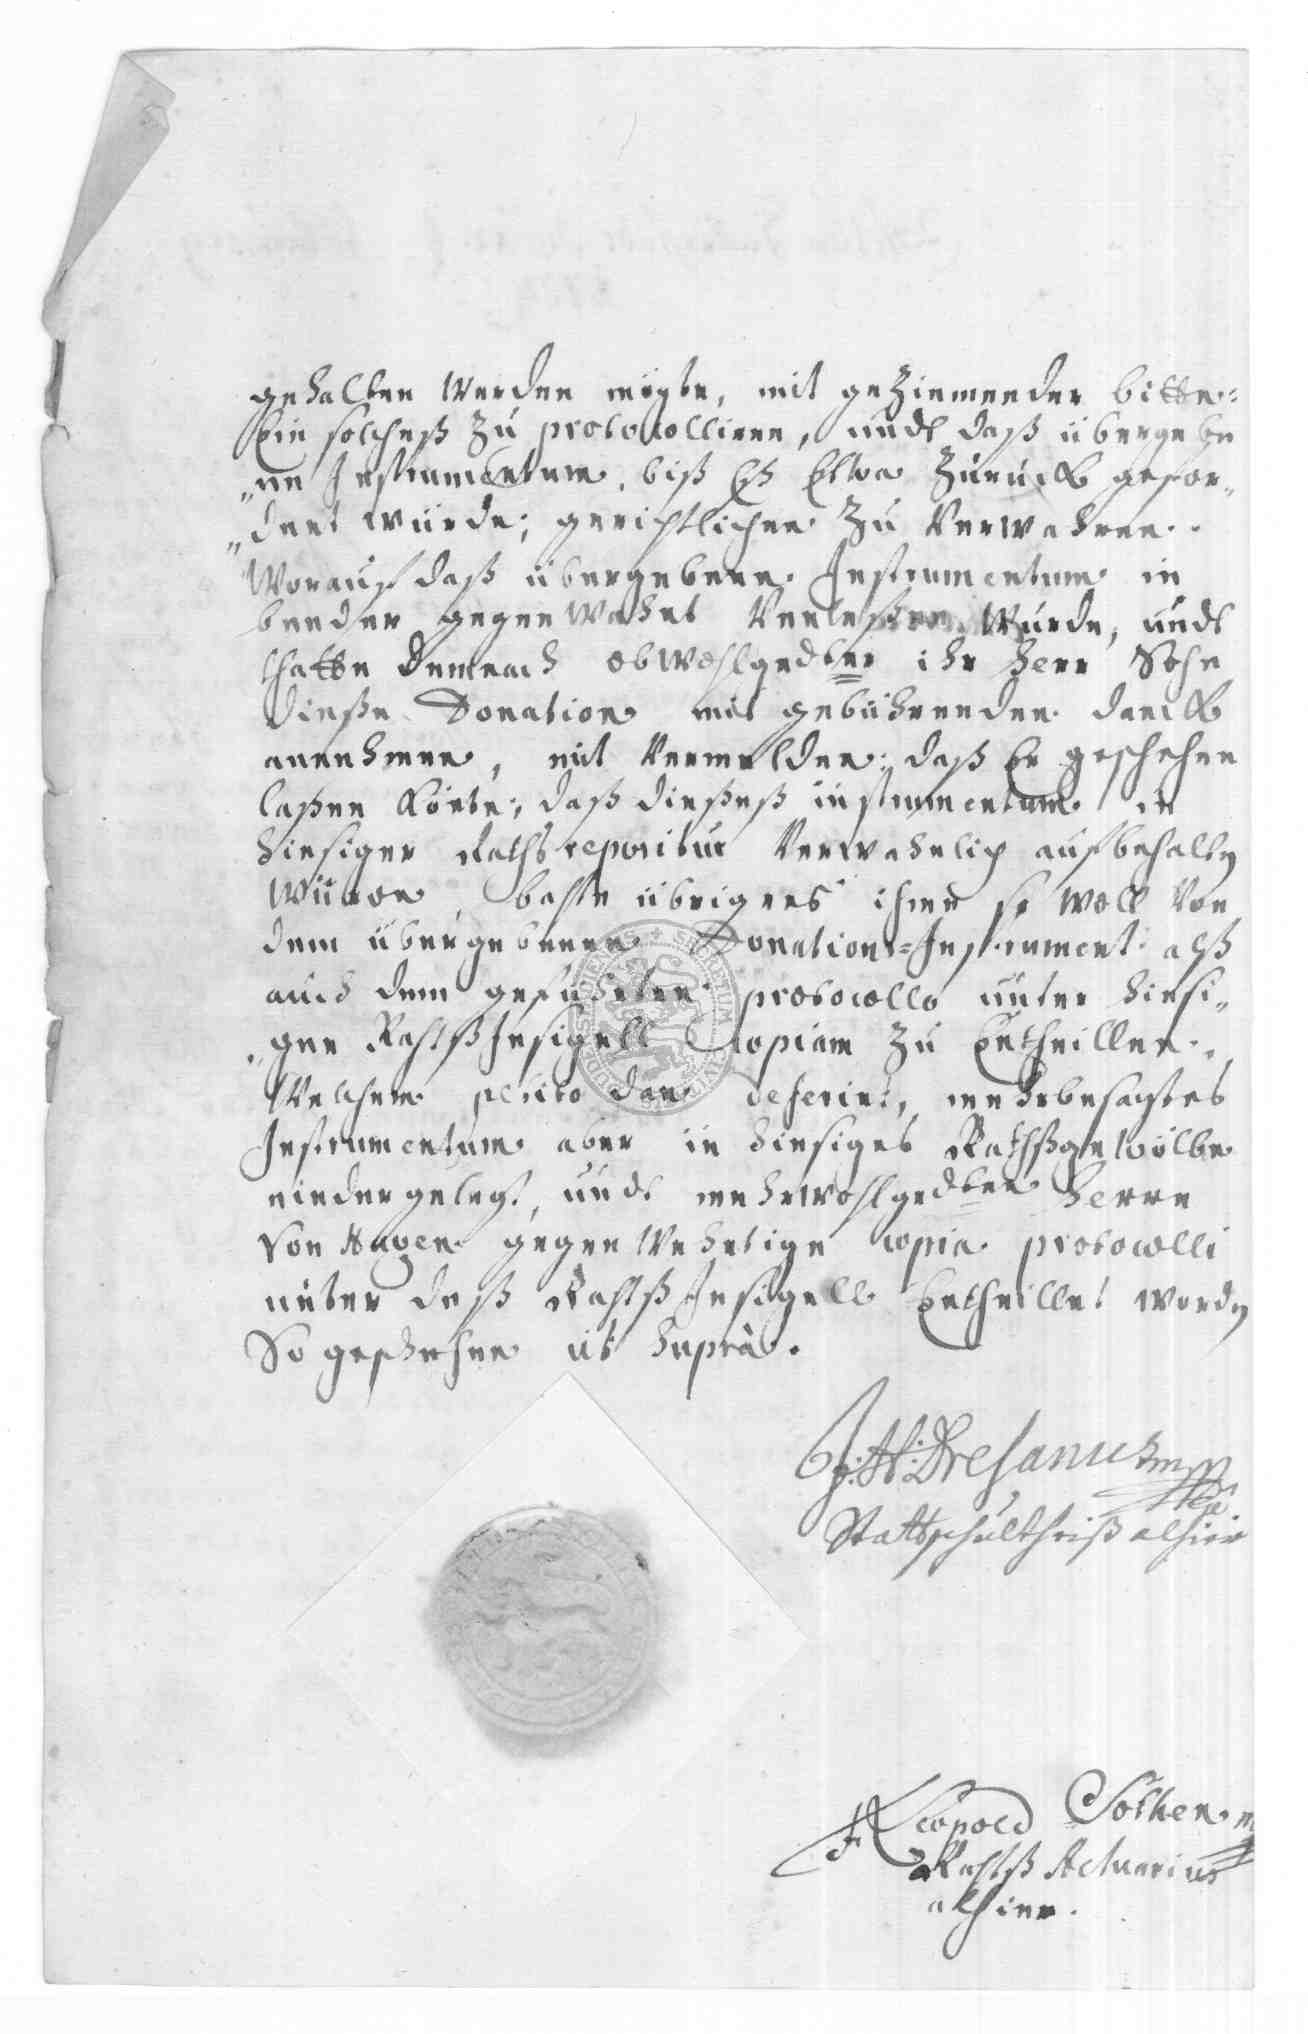 gehalten werden mögte, mit geziemender bitte
Ein solcheß zu protocolliren, undt daß übergebe
„ne Instrumentum, biß Eß Etwa zurück gefor„
„dert würde, gerichtlichen zu verwahren.
Worauf daß übergebene Instrumentum in
beeder gegenwahrt verleßen wurde, undt
thätte demnach obwohlgedter ihr Herr Sohn
dieße Donation mit gebührenden danck
annehmen, mit vermelden, daß Er geschehen
laßen könte, daß dießeß instrumentum in
hiesiger Rathsrepositur verwahrlich aufbehalten
würde, bathe übrigens ihme so woll von
dem übergebenen Donations-Instrument alß
auch dem geführten protocollo unter hiesi„
„gen RahtßInsigell Copiam zu Ertheillen.
Welchem petito dan deferirt, mehrbesagtes
Instrumentum aber in hiesiges Rathßgewölbe
niedergelegt, undt mehrwohlgedten Herrn
von Hagen gegenwehrtige copia protocolli
unter deß Rahtß Insigell Ertheillet worden
So geschehen ut supra.
J: H: Dresanus mppria
Stattschultheiß alhier
F Leopold Söthen mp
Rahtß Actuarius
alhier.